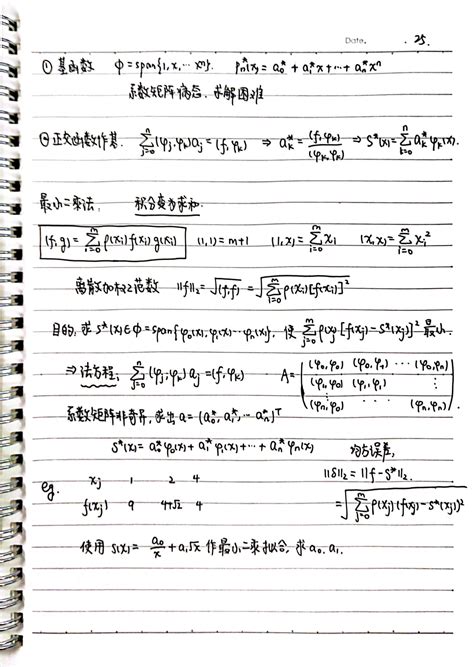 Date. 25.
① 基函数 Φ=span{1,x,…xⁿ}. Pₙ*(x) = a₀* + a₁*x + … + aₙ*xⁿ
系数矩阵病态. 求解困难
② 正交函数作基. Σ_{j=0}^{n} (φⱼ,φₖ)aⱼ = (f,φₖ) ⇒ aₖ* = (f,φₖ)/(φₖ,φₖ) ⇒ S*(x) = Σ_{k=0}^{n} aₖ*φₖ(x).
最小二乘法. 积分变为求和.
(f,g) = Σ_{i=0}^{m} ρ(xᵢ)f(xᵢ)g(xᵢ) (1,1) = m+1 (1,x) = Σ_{i=0}^{m} xᵢ (x,x) = Σ_{i=0}^{m} xᵢ²
离散加权2范数 ‖f‖₂ = √(f,f) = √(Σ_{i=0}^{m} ρ(xᵢ)[f(xᵢ)]²)
目的: 求 S*(x)∈Φ=span{φ₀(x),φ₁(x)…φₙ(x)}, 使 Σ_{j=0}^{m} ρ(xⱼ)[f(xⱼ)-S*(xⱼ)]² 最小.
⇒ 法方程: Σ_{j=0}^{n} (φⱼ,φₖ) aⱼ = (f,φₖ) A = ( (φ₀,φ₀) (φ₀,φ₁) … (φ₀,φₙ)
(φ₁,φ₀) (φ₁,φ₁) ⋮
(φₙ,φ₀) … (φₙ,φₙ) )
系数矩阵非奇异, 求出 a = (a₀*, a₁*, … aₙ*)ᵀ
S*(x) = a₀*φ₀(x) + a₁*φ₁(x) + … + aₙ*φₙ(x) 均方误差,
‖δ‖₂ = ‖f-S*‖₂.
= √(Σ_{j=0}^{m} ρ(xⱼ)(f(xⱼ)-S*(xⱼ))²
eg. xⱼ 1 2 4
f(xⱼ) 9 4+√2 4
使用 S(x) = a₀/x + a₁√x 作最小二乘拟合, 求 a₀. a₁.